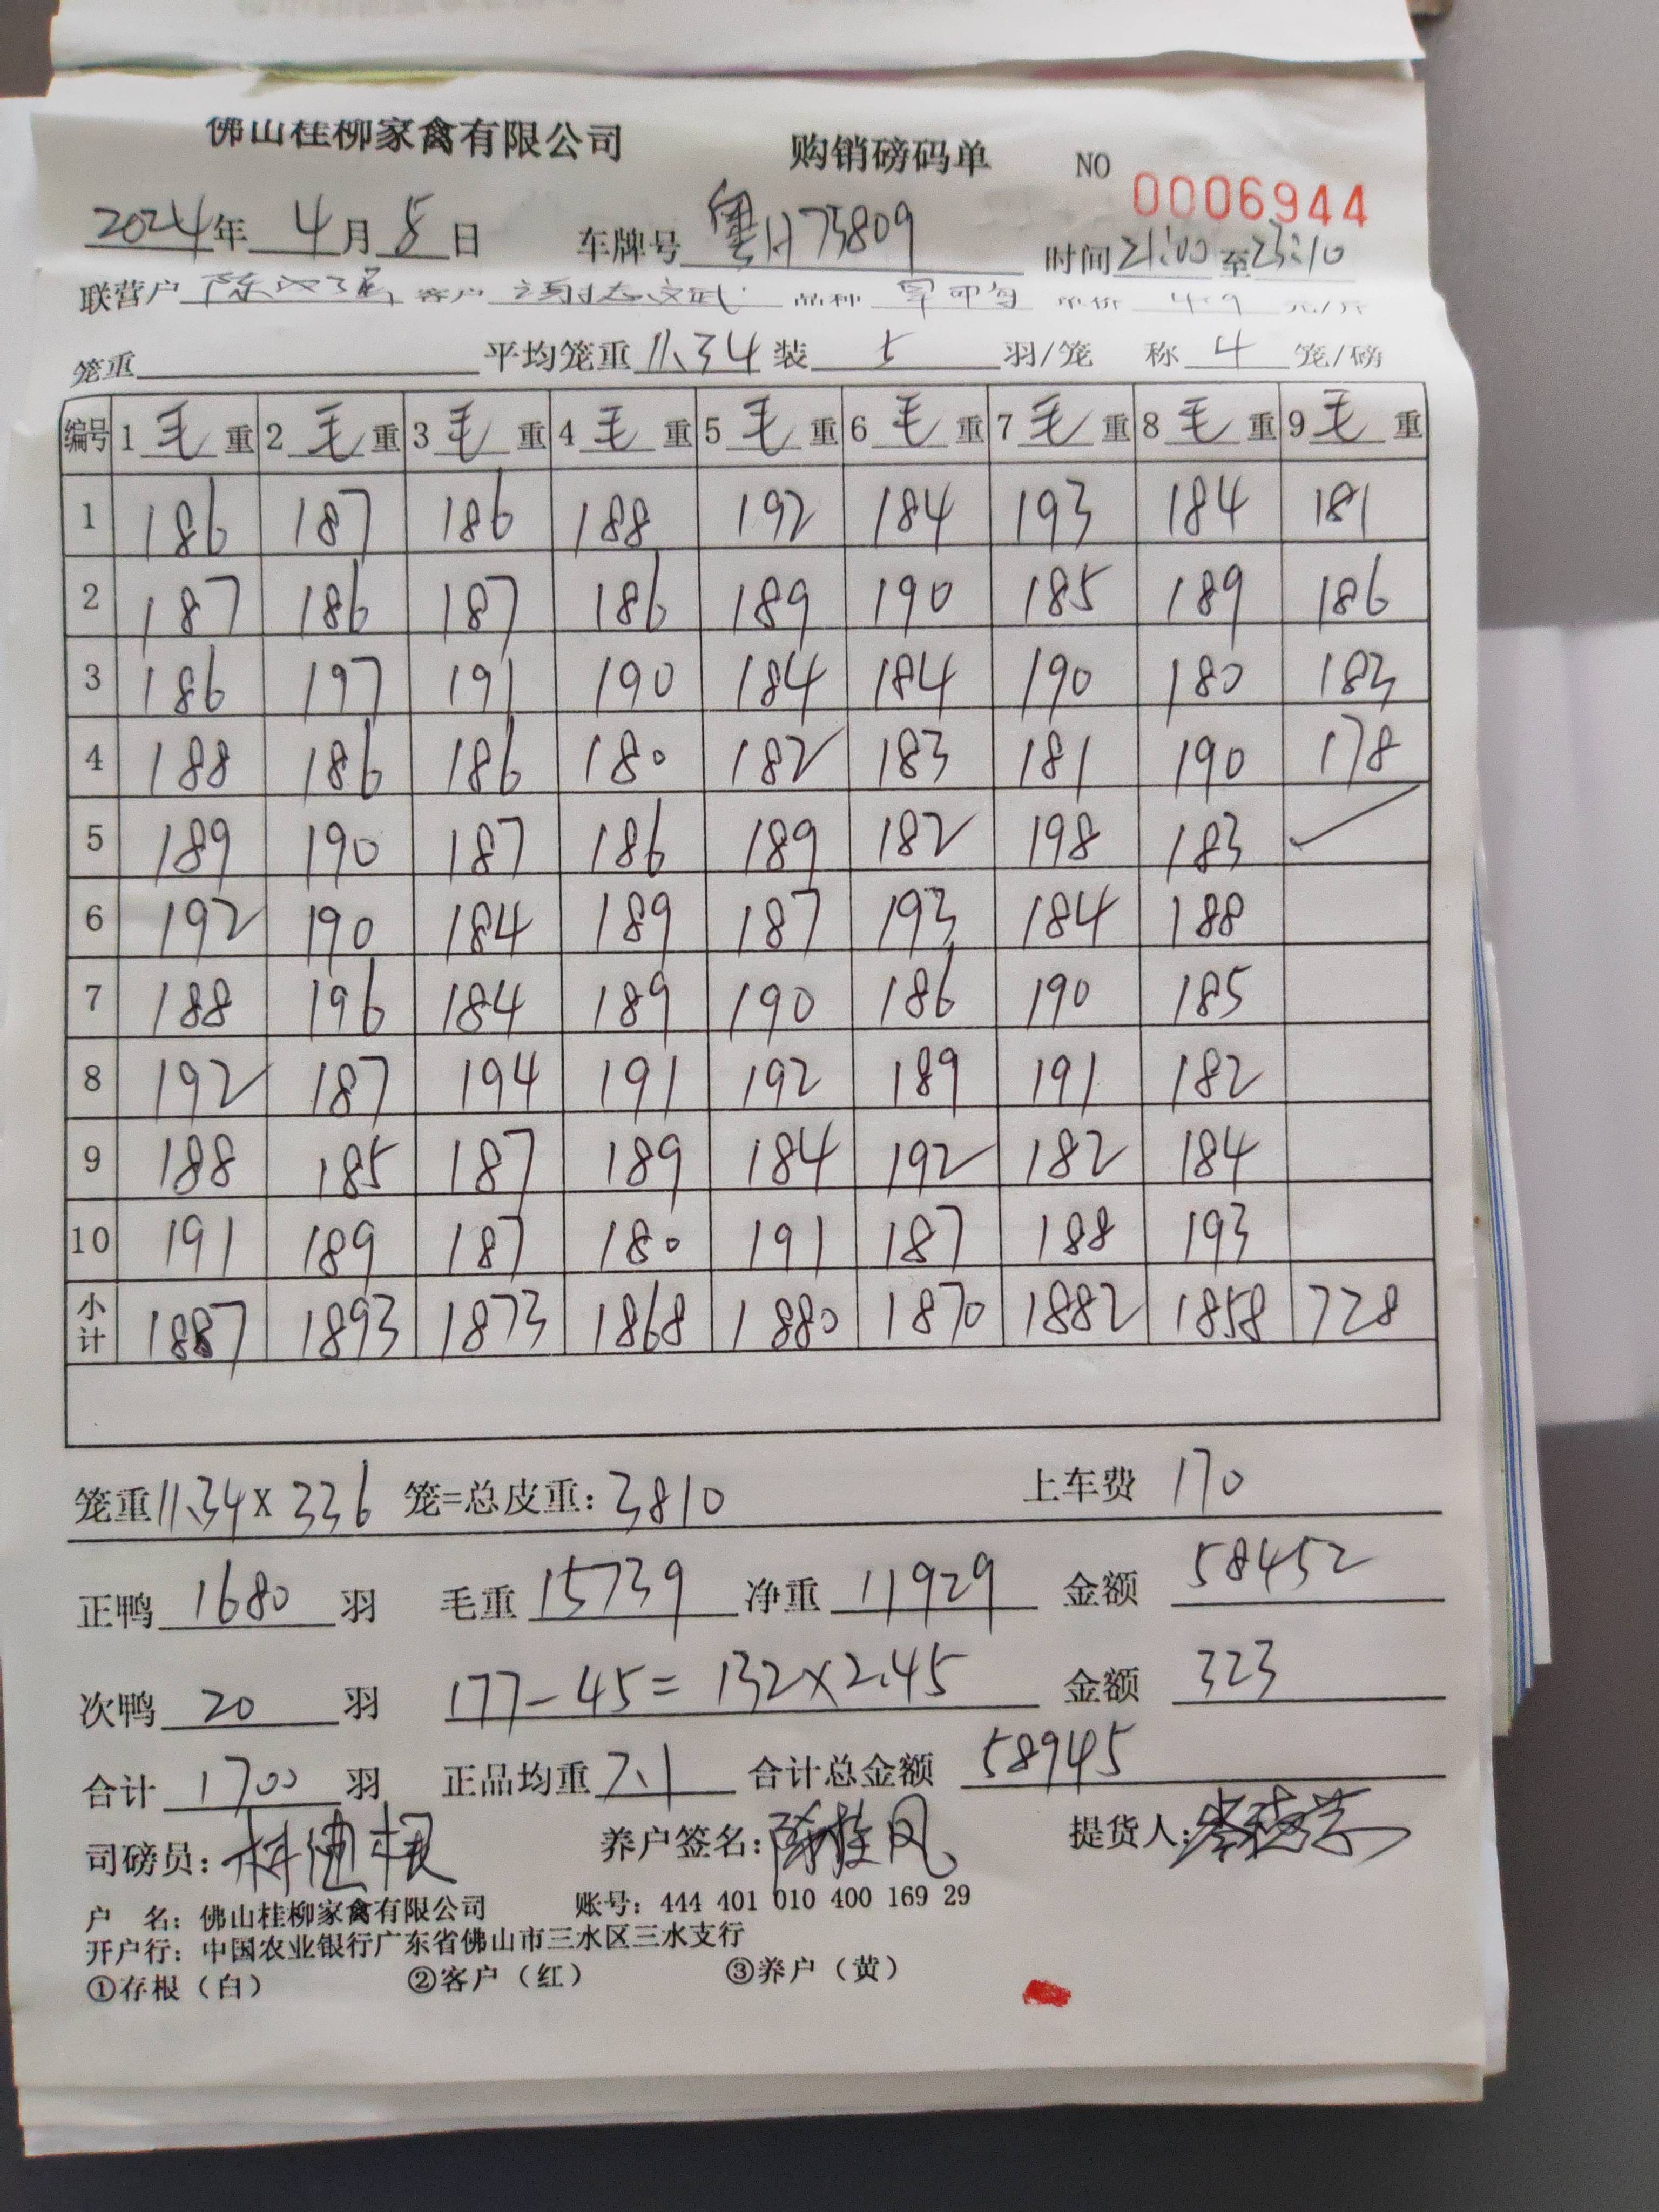 佛山桂柳家禽有限公司 购销磅码单 NO 0006944
2024年 4月 8日 车牌号 粤H73809 时间 21:00 至 23:10
联营户 陈 客户 品种 单价 4.9 元/斤
笼重 平均笼重 11.34 装 5 羽/笼 称 4 笼/磅
编号 1 毛 重 2 毛 重 3 毛 重 4 毛 重 5 毛 重 6 毛 重 7 毛 重 8 毛 重 9 毛 重
1 186 187 186 188 192 184 193 184 181
2 187 186 187 186 189 190 185 189 186
3 186 197 191 190 184 184 190 180 183
4 188 186 186 180 182 183 181 190 178
5 189 190 187 186 189 182 198 183 ✓
6 192 190 184 189 187 193 184 188
7 188 196 184 189 190 186 190 185
8 192 187 194 191 192 189 191 182
9 188 185 187 189 184 192 182 184
10 191 189 187 180 191 187 188 193
小计 1887 1893 1873 1868 1880 1870 1882 1858 728
笼重 11.34 X 336 笼=总皮重: 3810 上车费 170
正鸭 1680 羽 毛重 15739 净重 11929 金额 58452
次鸭 20 羽 177-45=132×2.45 金额 323
合计 1700 羽 正品均重 7.1 合计总金额 58945
司磅员: 养户签名: 提货人:
户 名: 佛山桂柳家禽有限公司 账号: 444 401 010 400 169 29
开户行: 中国农业银行广东省佛山市三水区三水支行
①存根(白) ②客户(红) ③养户(黄)